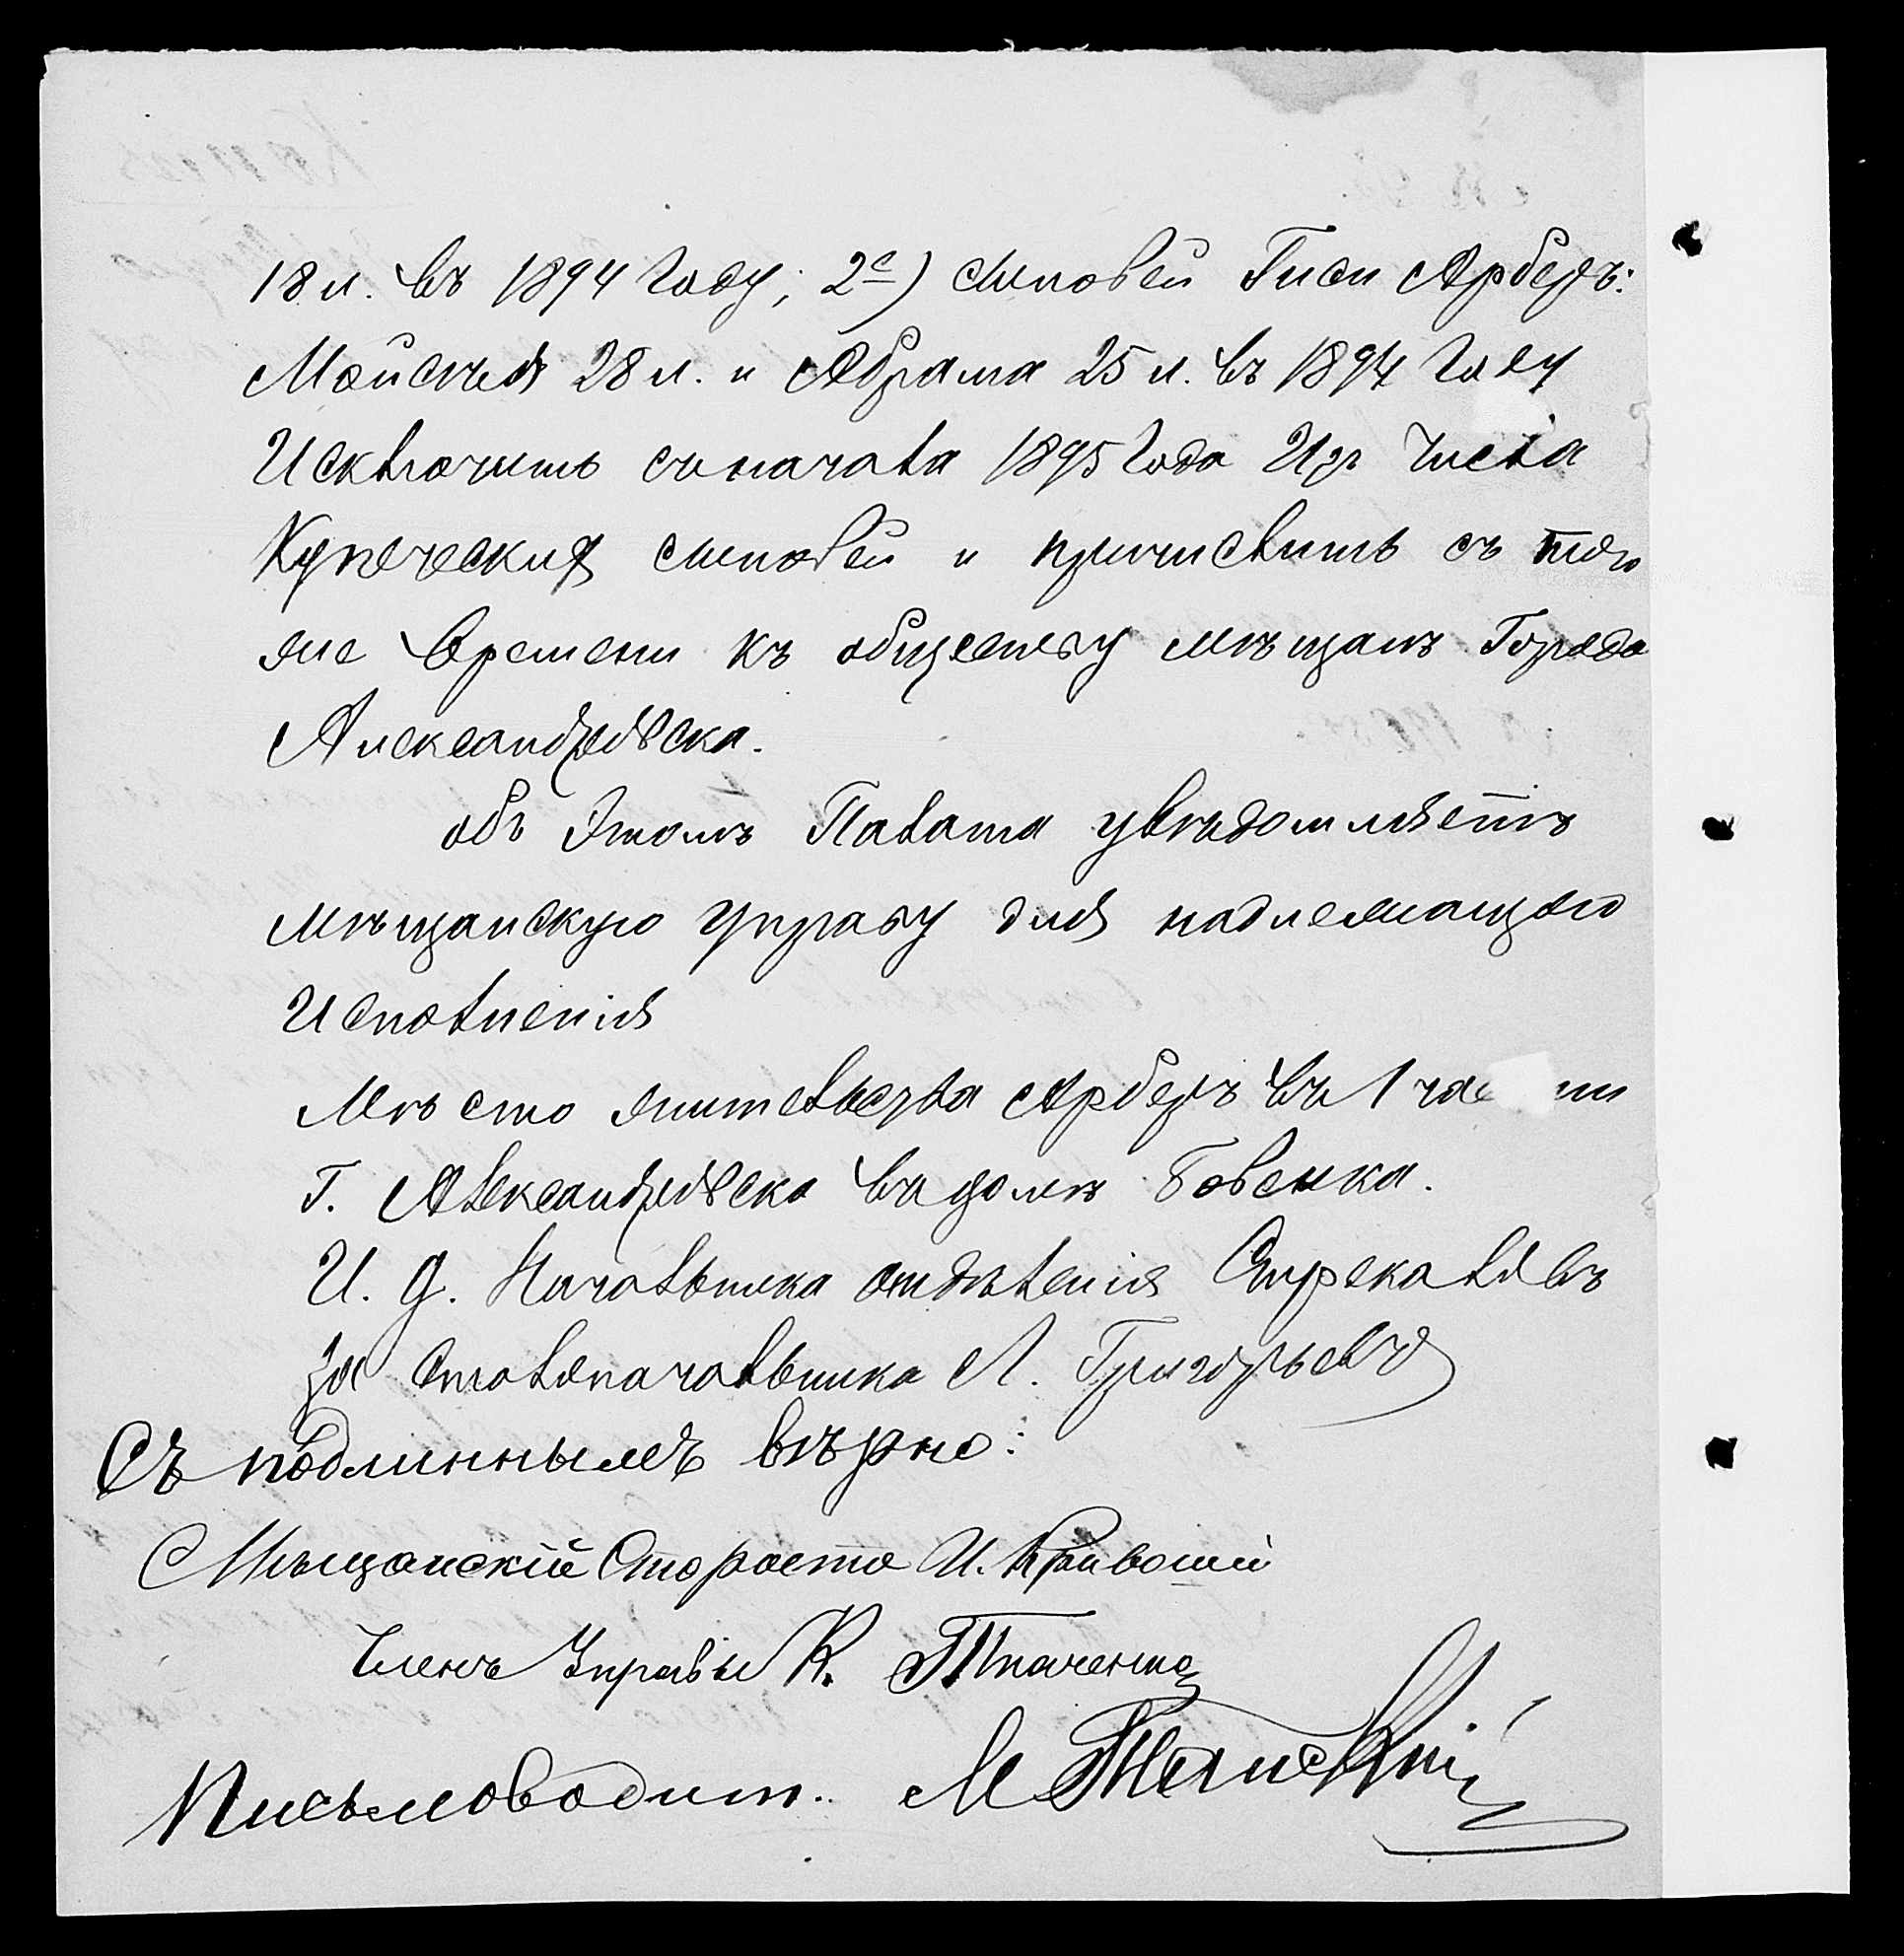 18 л. въ 1894 году; 2е) сыновей Гиси Арберъ:
Мойсѣя 28 л. и Абрама 25 л. въ 1894 году
Исключить съ начала 1895 года Изъ числа
Купеческихъ сыновей и причислить съ того
же времени къ обществу мѣщанъ Города
Александровска.
объ Этомъ Палата увѣдомляетъ
мѣщанскую управу для надлежащаго
Исполненія
Мѣсто жительства Арберъ въ 1 части
г. Александровска въ домѣ Бовенка.
И. д. Начальника отдѣленія
за Столоначальника Л. Григорьевъ
Съ подлиннымъ вѣрно:
Мѣщанскій Староста И. Кривошей
Членъ Управы К. Ткаченко
Письмоводит. М